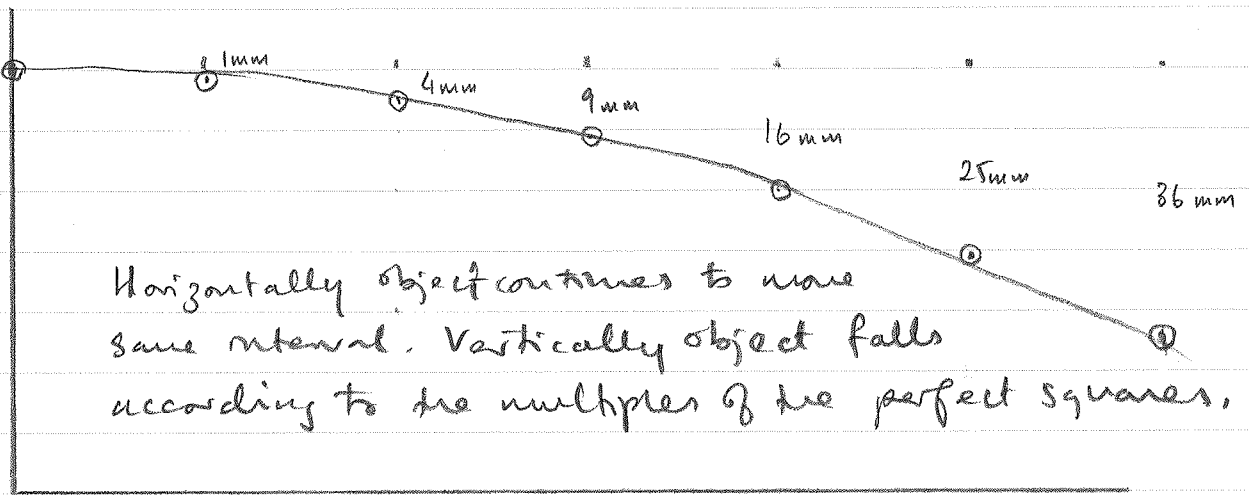 1mm
4mm
9mm
16mm
25mm
36 mm
Horizontally object continues to move
same interval. Vertically object falls
according to the multiples of the perfect squares.